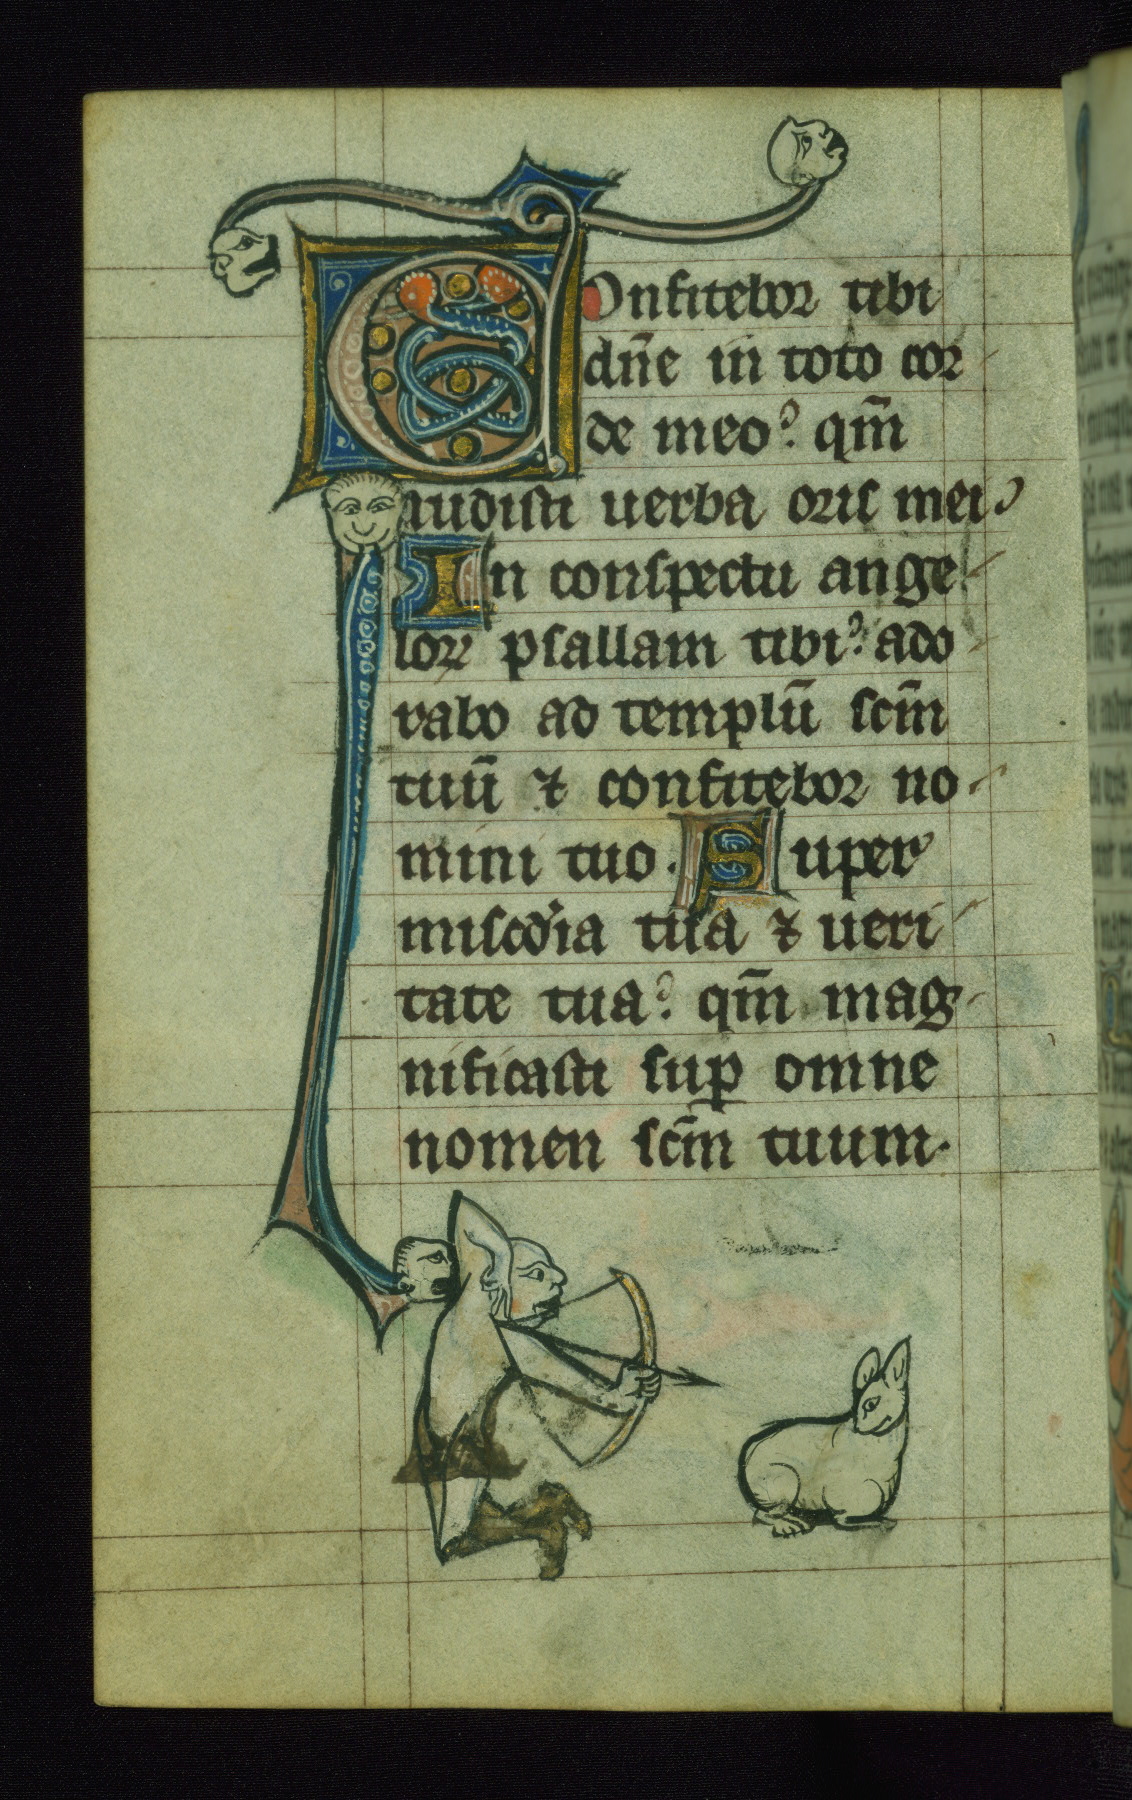 Confitebor tibi
dn̄e in toto cor
de meo? qm̄
audisti uerba oris mei
In conspectu ange
loꝝ psallam tibi? ado
rabo ad templū scm̄
tuū ⁊ confitebor no
mini tuo. Super
misc̄dia tua ⁊ ueri
tate tua? qm̄ mag
nificasti suꝑ omne
nomen scm̄ tuum.